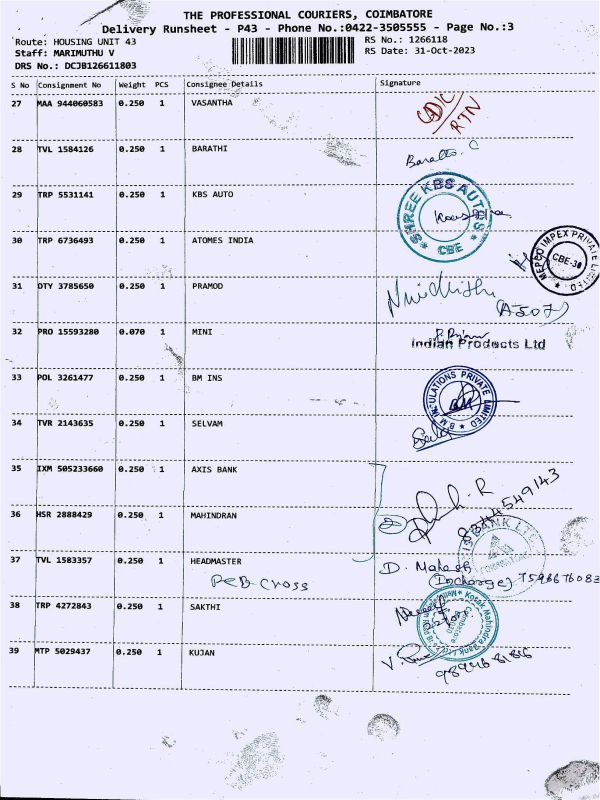 THE PROFESSIONAL COURIERS, COIMBATORE
Delivery Runsheet - P43 - Phone No.:0422-3505555 - Page No.:3
Route: HOUSING UNIT 43 RS No.: 1266118
Staff: MARIMUTHU V RS Date: 31-Oct-2023
DRS No.: DCJB126611803
S No Consignment No Weight PCS Consignee Details Signature
27 MAA 944060583 0.250 1 VASANTHA
RTN
28 TVL 1584126 0.250 1 BARATHI
29 TRP 5531141 0.250 1 KBS AUTO
SHREE KBS AUTOS
CBE
30 TRP 6736493 0.250 1 ATOMES INDIA
MEPCO IMPEX PRIVATE LIMITED
CBE-30
31 DTY 3785650 0.250 1 PRAMOD
32 PRO 15593280 0.070 1 MINI
Indian Products Ltd
33 POL 3261477 0.250 1 BM INS
B.M INSULATIONS PRIVATE LIMITED
34 TVR 2143635 0.250 1 SELVAM
35 IXM 505233660 0.250 1 AXIS BANK
8344549143
36 HSR 2888429 0.250 1 MAHINDRAN
37 TVL 1583357 0.250 1 HEADMASTER
D. Mahesh
(Incharge) 7598676083
38 TRP 4272843 0.250 1 SAKTHI
Kotak Mahindra Bank Ltd
39 MTP 5029437 0.250 1 KUJAN